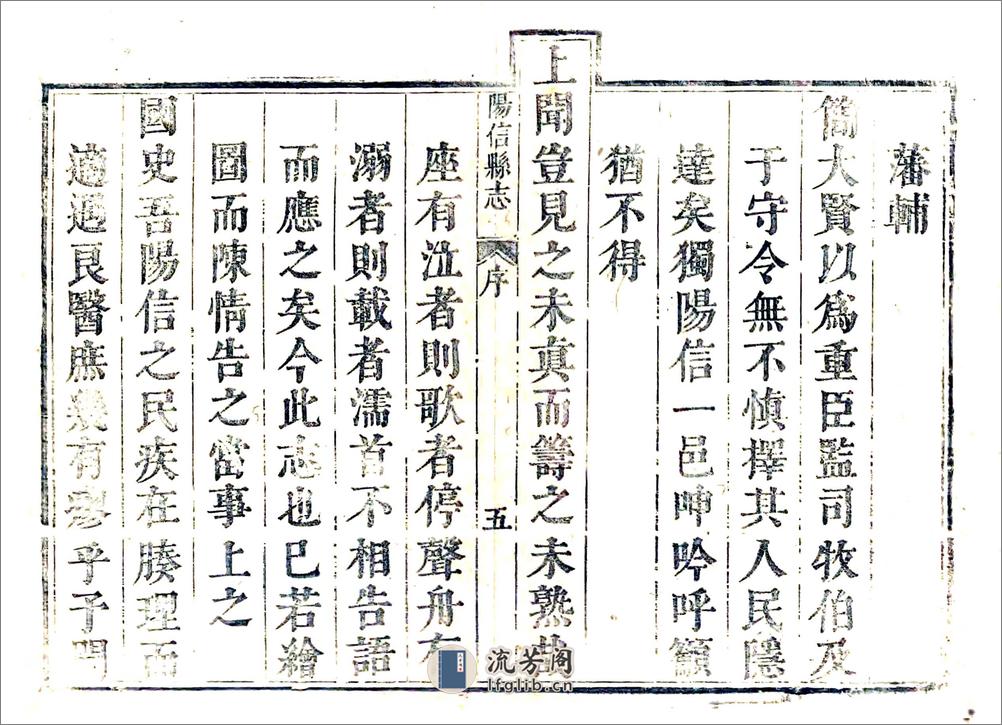 藩輔
簡大賢以爲重臣監司牧伯及
于守令無不慎擇其人民隱
達矣獨陽信一邑呻吟呼籲
猶不得
上聞豈見之未真而籌之未熟
陽信縣志 序 五
座有泣者則歌者停聲舟有
溺者則載者濡首不相告語
而應之矣今此志也已若繪
圖而陳情告之當事上之
國史吾陽信之民疾在腠理而
適遇良醫庶幾有瘳乎予
流芳阁
lfglib.cn